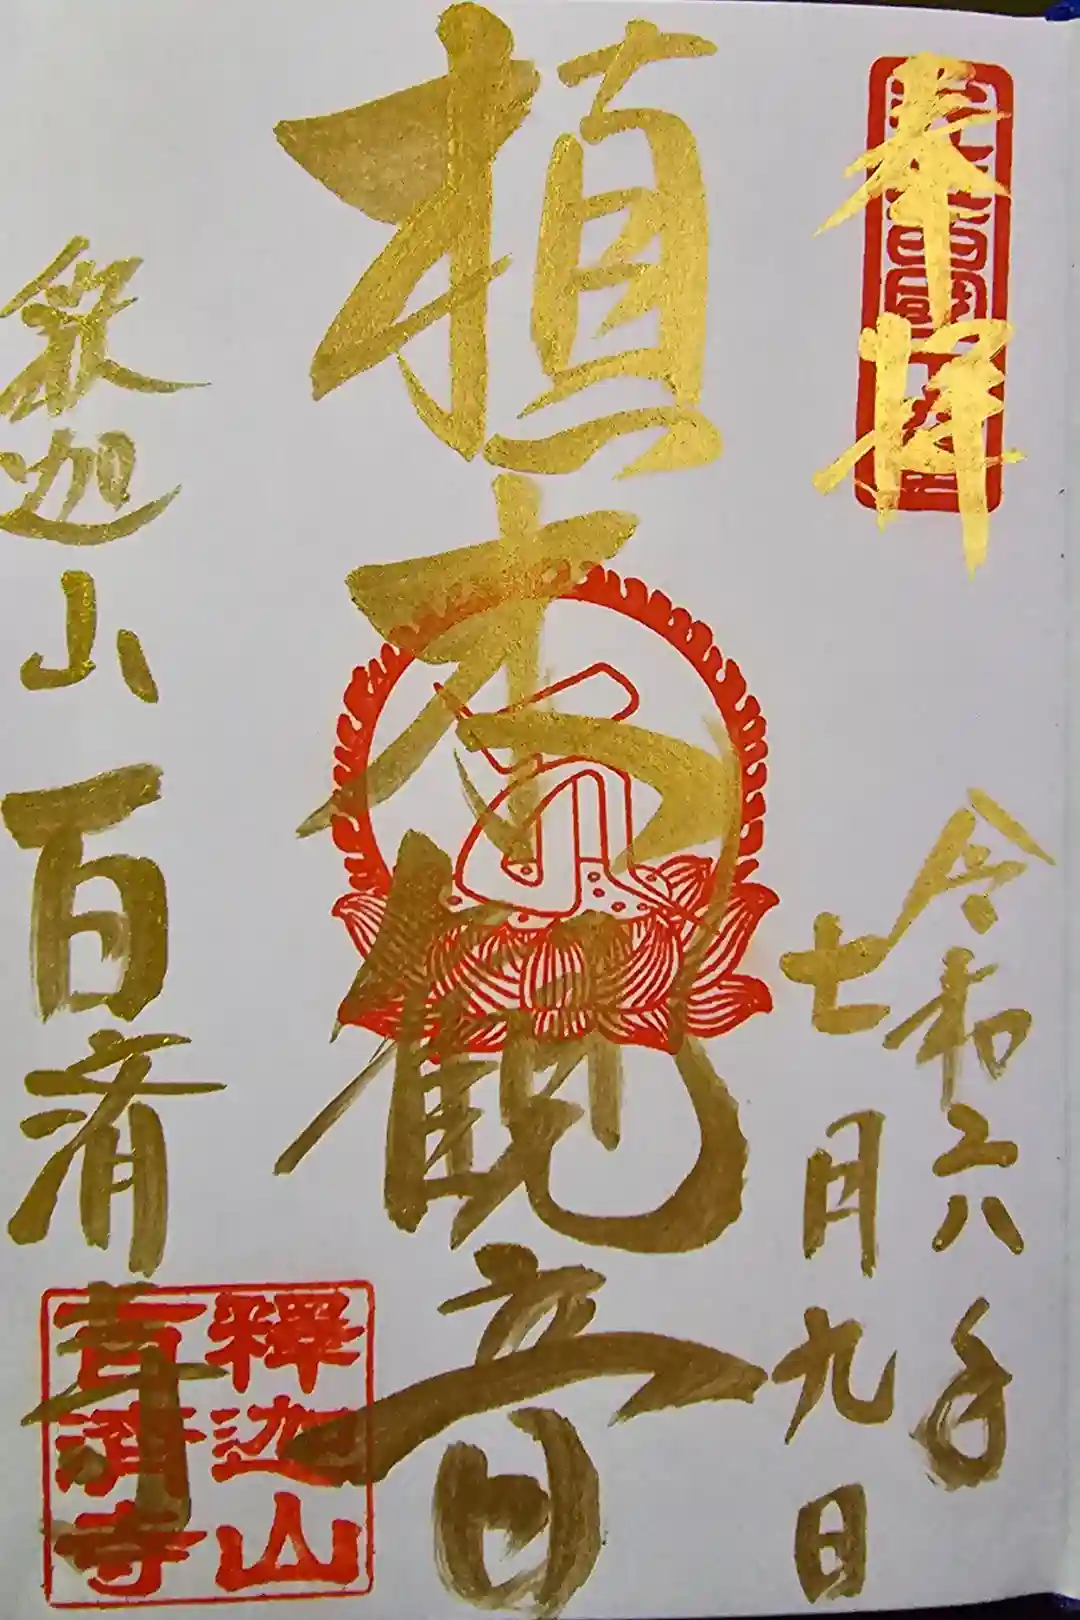 奉拝
令和六年
七月九日
植木観音
釈迦山 百済寺
釋迦山
百濟寺